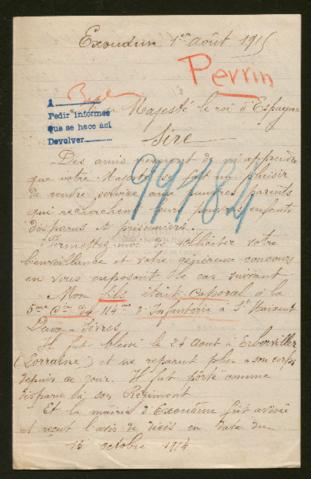 Exoudun 1er août 1915
Perrin
A
Pedir informes
que se hace aci
Devolver
Sa Majesté le roi d'Espagne
Sire
Des amis viennent de m'apprendre
que votre Majesté se fait un plaisir
de rendre service aux pauvres parents
qui recherchent leurs pauvres enfants
disparus et prisonniers.
99484
Permettez-moi de solliciter votre
bienveillance et votre généreux concours
en vous exposant le cas suivant
Mon fils était caporal à la
5me Cie du 114me d'Infanterie à St Maixent
Deux-Sèvres
Il fut blessé le 26 août à
(Lorraine) et ne reparut plus à son corps
depuis ce jour. Il fut porté comme
disparu à son Régiment
Et la mairie d'Exoudun fut avisée
et reçut l'avis de décès en date du
16 octobre 1914